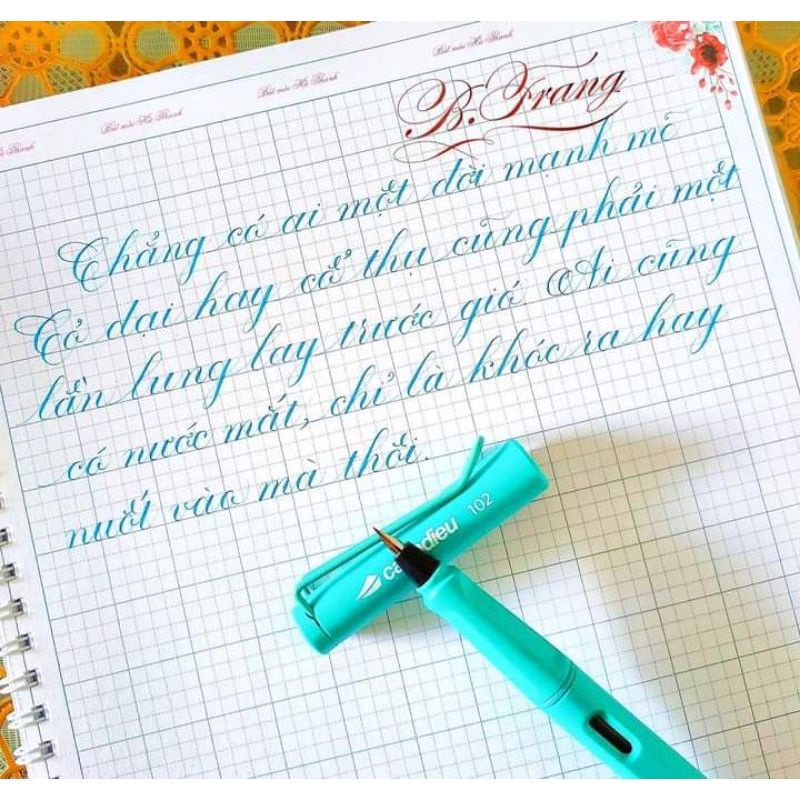 Bút mài Hà Thanh
Bút mài Hà Thanh
Bút mài Hà Thanh
Thanh
B. Trang
Chẳng có ai một đời mạnh mẽ
Cỏ dại hay cổ thụ cũng phải một
lần lung lay trước gió Ai cũng
có nước mắt, chỉ là khóc ra hay
nuốt vào mà thôi.
102